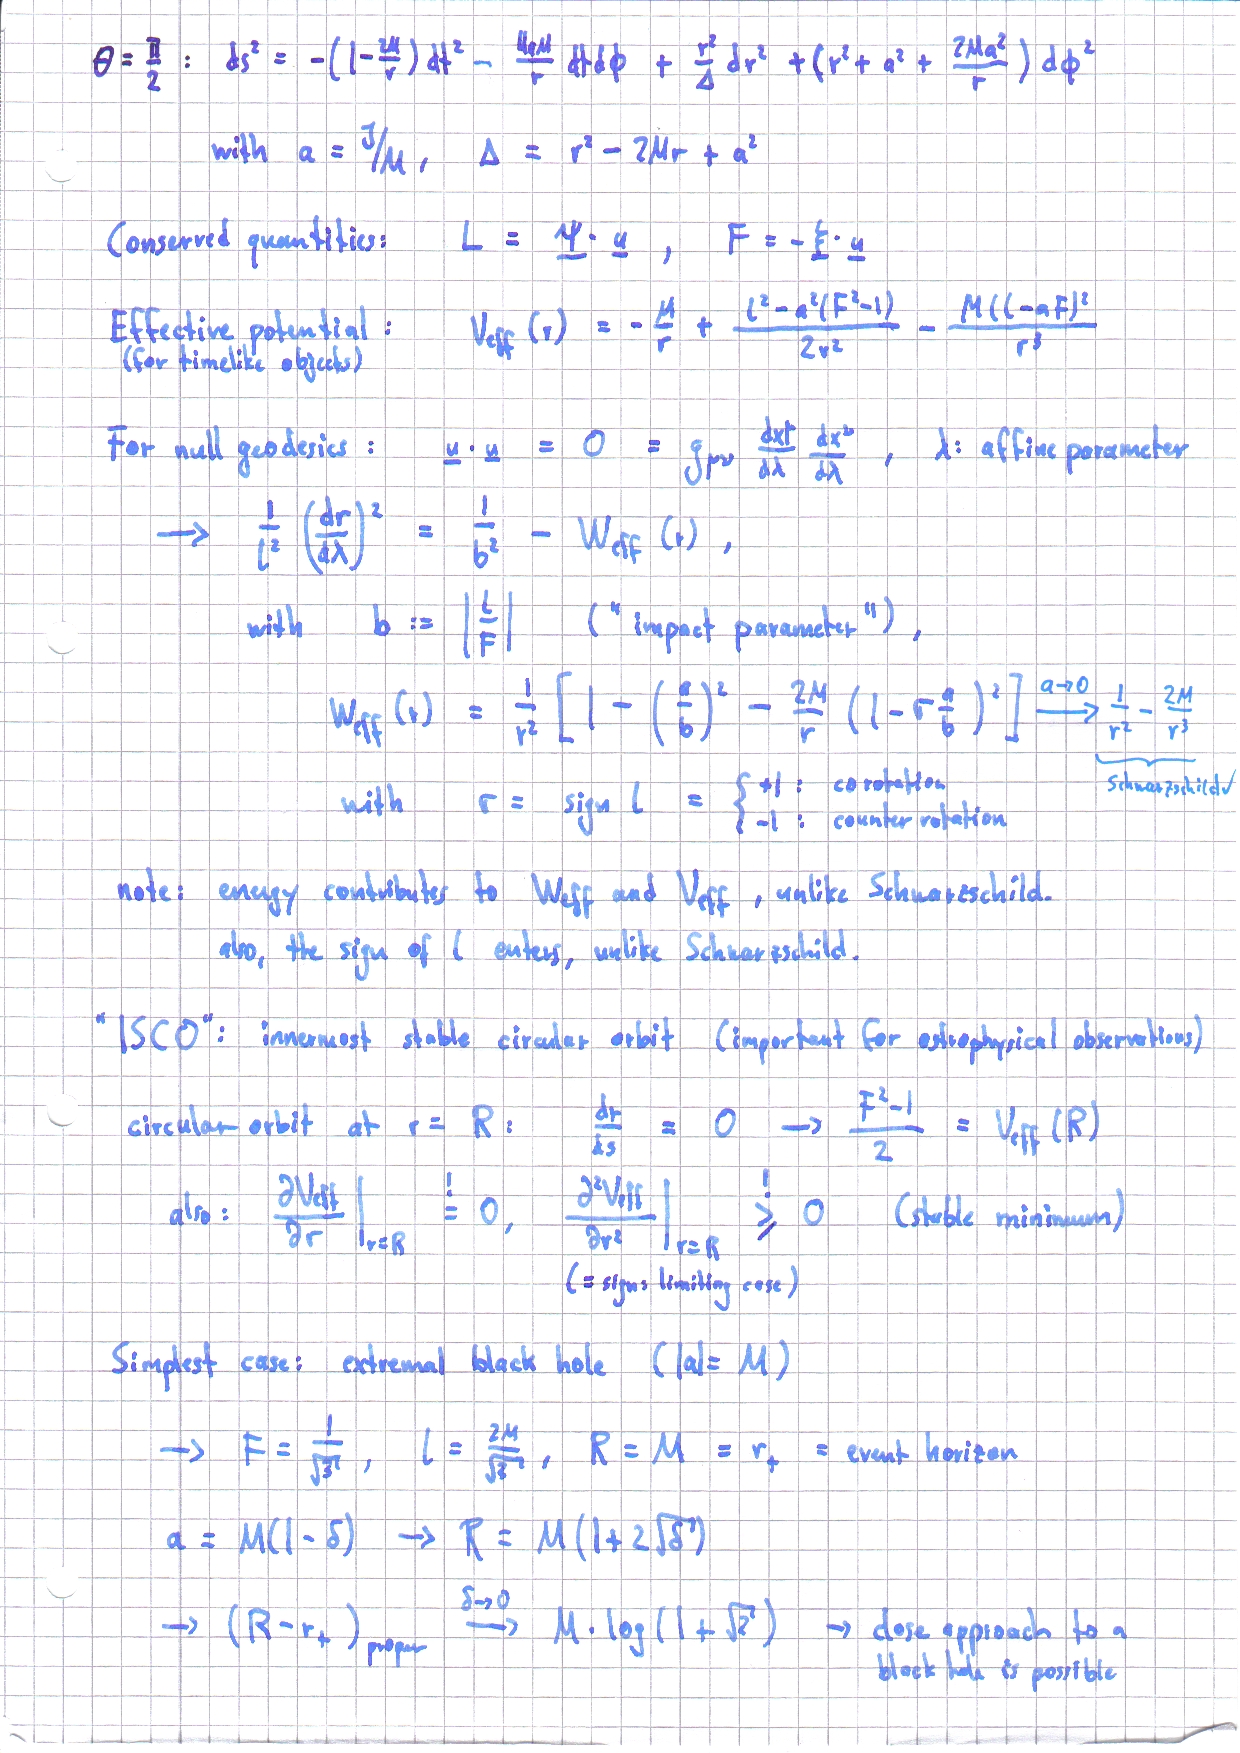 θ = π/2 : ds² = -(1-2M/r) dt² - 4aM/r dt dϕ + r²/Δ dr² + (r² + a² + 2Ma²/r) dϕ²
with a = J/M, Δ = r² - 2Mr + a²
Conserved quantities: L = ψ · u, F = -ξ · u
Effective potential: V_eff (r) = - M/r + (l² - a²(F²-1))/(2r²) - M(l-aF)²/r³
(for timelike objects)
For null geodesics: u · u = 0 = g_μν dx^μ/dλ dx^ν/dλ, λ: affine parameter
→ 1/l² (dr/dλ)² = 1/b² - W_eff (r),
with b := |L/F| ("impact parameter"),
W_eff (r) = 1/r² [1 - (a/b)² - 2M/r (1 - σ a/b)²] →(a→0) 1/r² - 2M/r³
Schwarzschild ✓
with σ = sign l = { +1 : corotation
-1 : counter rotation
note: energy contributes to W_eff and V_eff, unlike Schwarzschild.
also, the sign of l enters, unlike Schwarzschild.
"ISCO": innermost stable circular orbit (important for astrophysical observations)
circular orbit at r = R: dr/ds = 0 → (F²-1)/2 = V_eff (R)
also: ∂V_eff/∂r |_r=R != 0, ∂²V_eff/∂r² |_r=R !≥ 0 (stable minimum)
(= signs limiting case)
Simplest case: extremal black hole (|a| = M)
→ F = 1/√3, l = 2M/√3, R = M = r₊ = event horizon
a = M(1-δ) → R = M(1+2√δ)
→ (R-r₊)_proper →(δ→0) M · log(1+√2) → close approach to a
black hole is possible